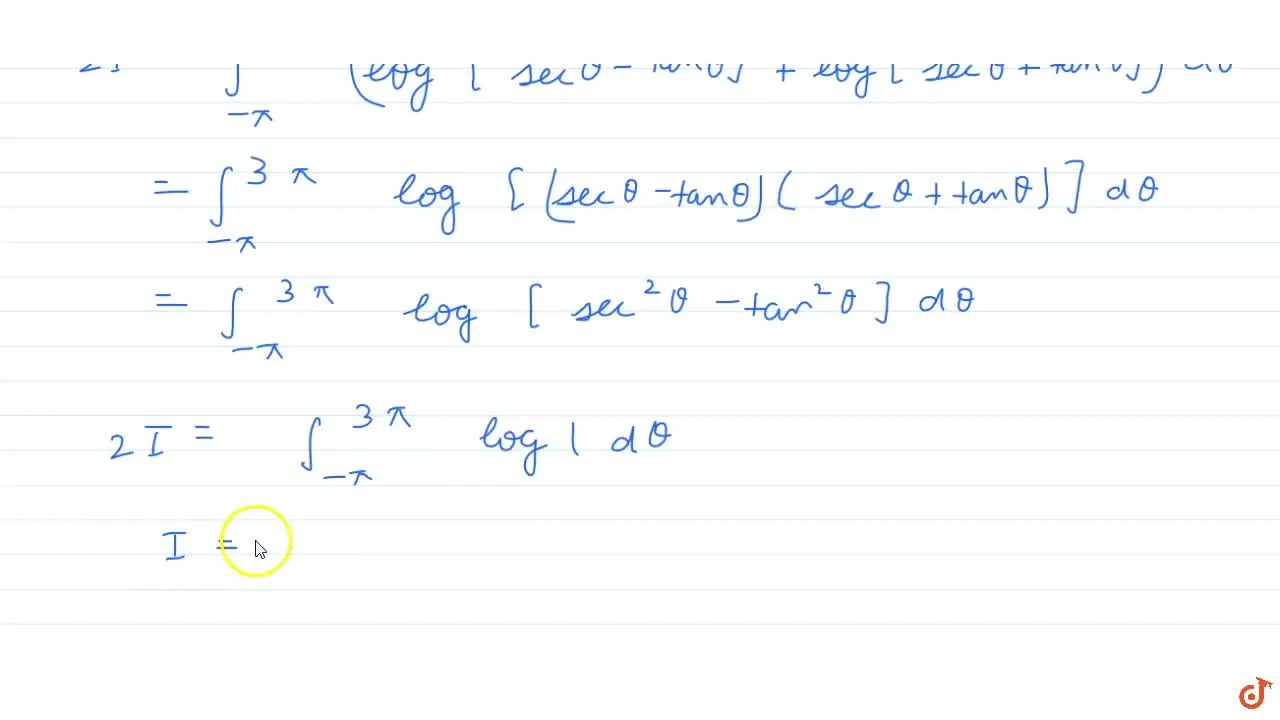 2I ∫ (log [ secθ - tanθ] + log [ secθ + tanθ]) dθ
-π
= ∫ 3π log [(secθ - tanθ)( secθ + tanθ)] dθ
-π
= ∫ 3π log [ sec²θ - tan²θ ] dθ
-π
2I = ∫ 3π log 1 dθ
-π
I =